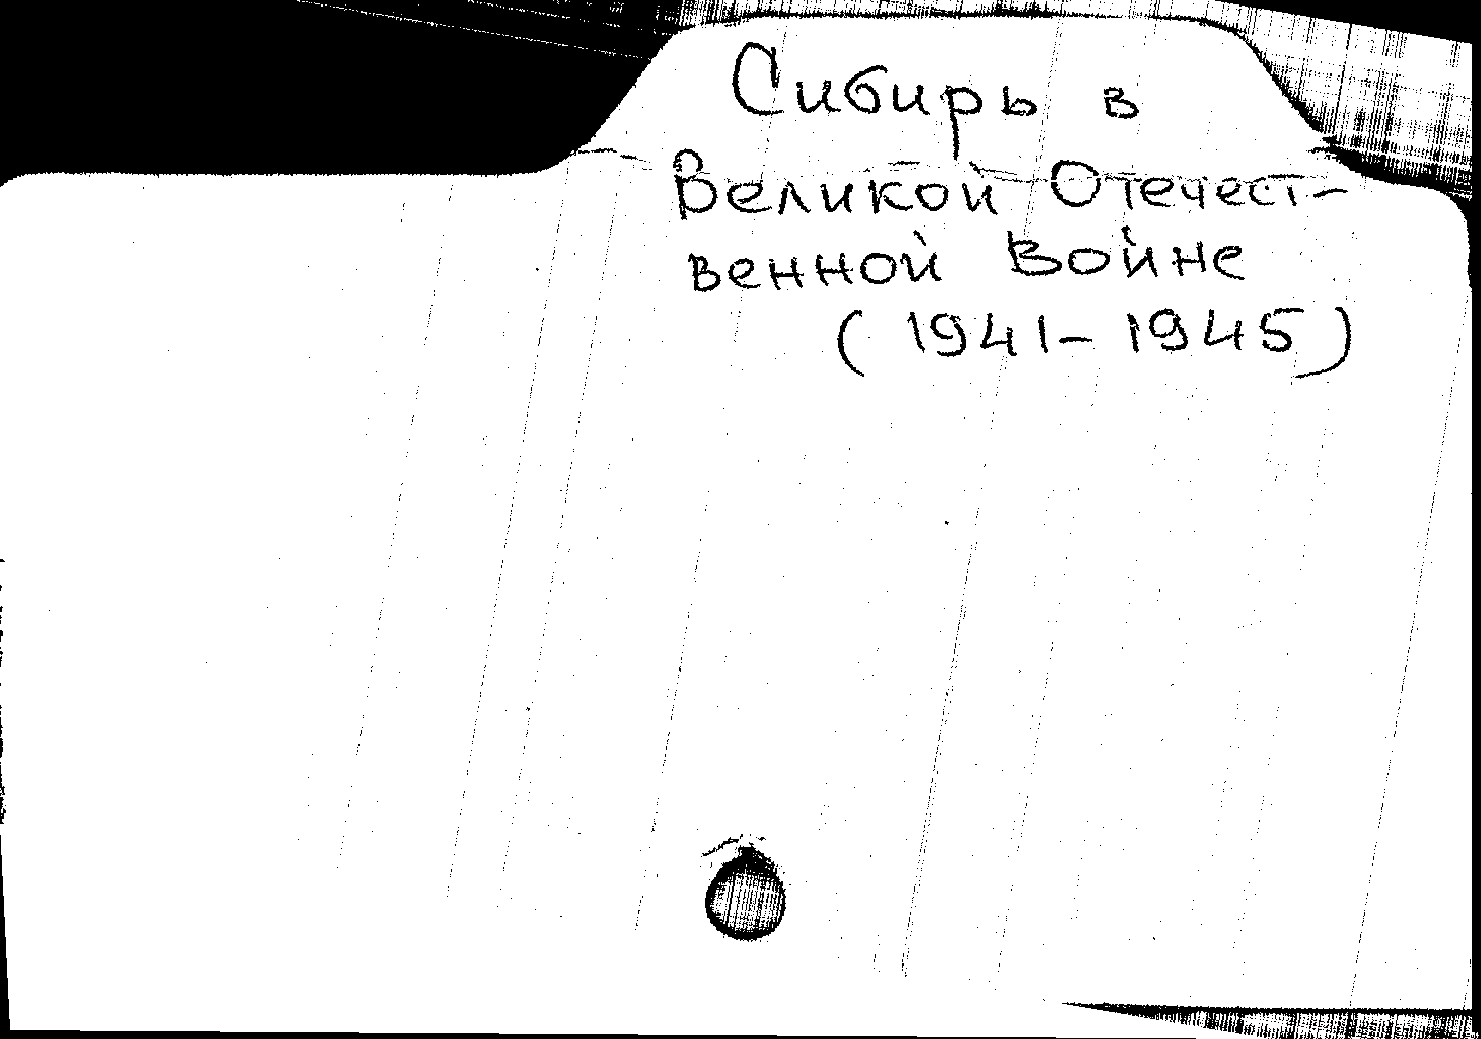 Сибирь в
Великой Отечест-
венной Войне
(1941-1945)